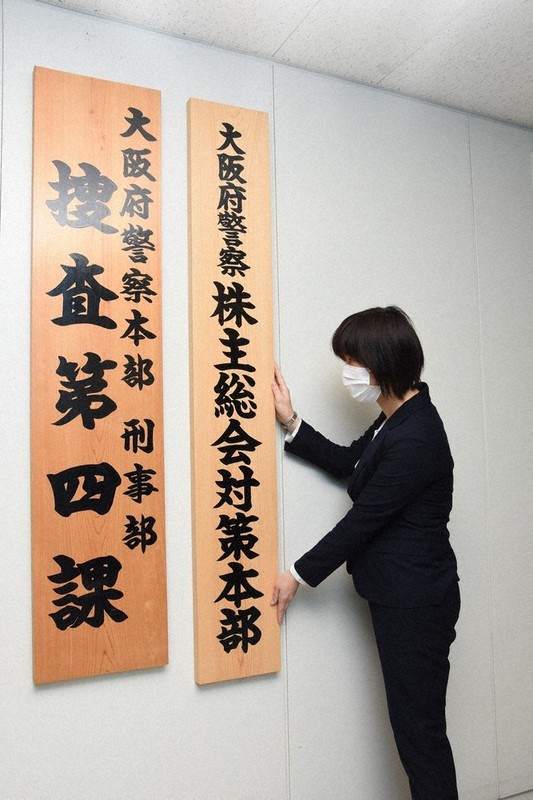 大阪府警察本部 刑事部
捜査第四課
大阪府警察 株主総会対策本部